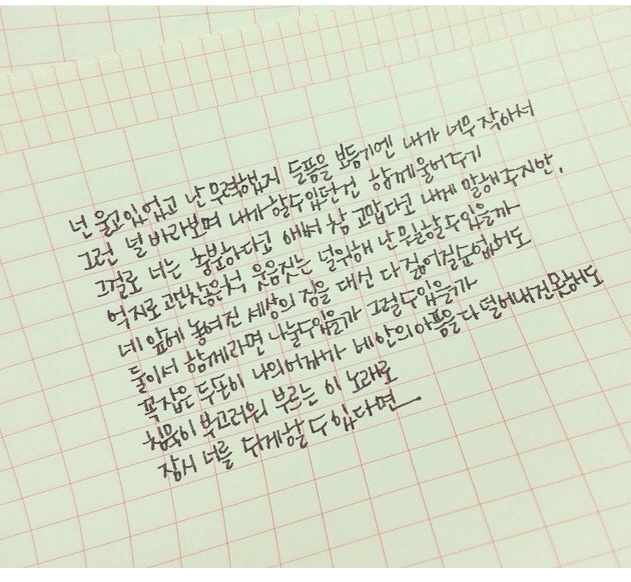 넌 울고있었고 난 무력했지 슬픔을 보듬기엔 내가 너무 작아서
그런 널 바라보며 내가 할수있던건 함께울어주기
그걸로 너는 충분하다고 애써 참 고맙다고 내게 말해주지만,
억지로 괜찮은척 웃음짓는 널위해 난 뭘할수있을까
네 앞에 놓여진 세상의 짐을 대신 다 짊어질순없어도
둘이서 함께라면 나눌수있을까 그럴수있을까
꼭잡은 두손이 나의어깨가 네안의아픔을다덜어내진못해도
침묵이 부끄러워 부르는 이 노래로
잠시 너를 쉬게할 수 있다면ㅡ